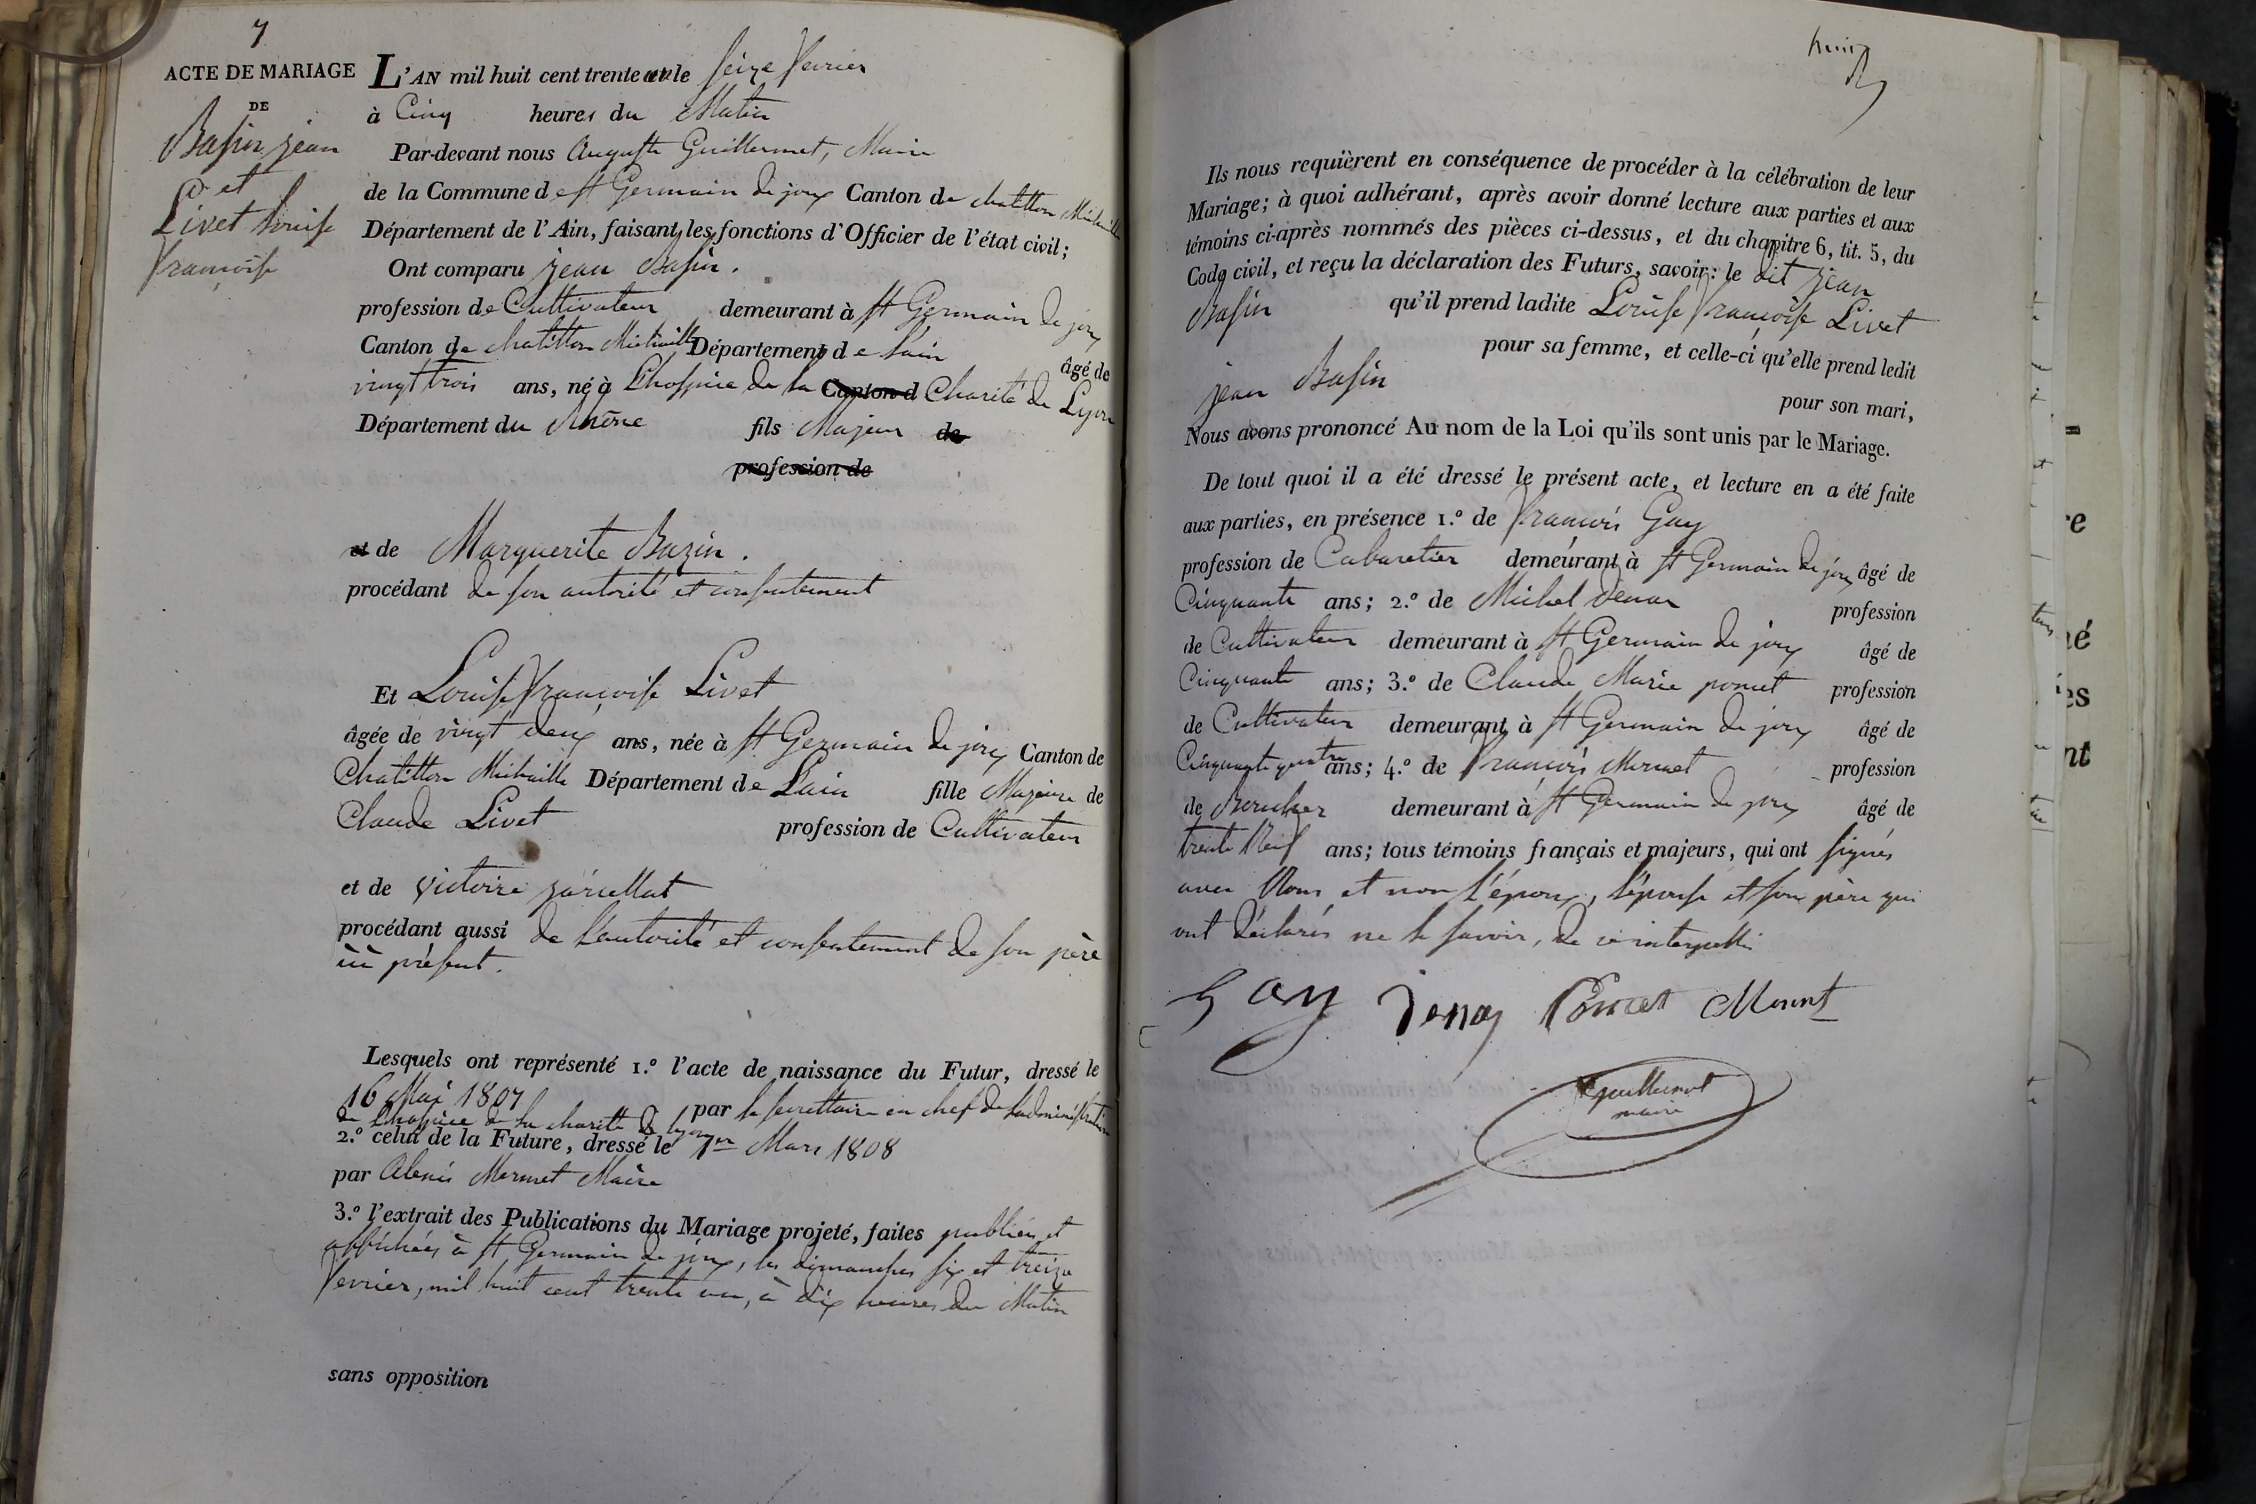 7
ACTE DE MARIAGE
DE
Basin jean
et
Livet Louise
françoise
L'AN mil huit cent trente un le seize fevrier
à Cinq heures du Matin
Par-devant nous Auguste Guillermet, Maire
de la Commune de st Germain de joux Canton de chatillon Michaille
Département de l'Ain, faisant les fonctions d'Officier de l'état civil;
Ont comparu jean Basin.
profession de Cultivateur demeurant à st Germain de joux
Canton de chatillon Michaille Département de l'ain âgé de
vingt trois ans, né à L'hospice de la Canton d Charité de Lyon
Département du Rhône fils Majeur de
profession de
et de Marguerite Bazin.
procédant de son autorité et consentement
Et Louise françoise Livet
âgée de vingt deux ans, née à st Germain de joux Canton de
Chatillon Michaille Département de Lain fille Majeure de
Claude Livet profession de Cultivateur
et de victoire
procédant aussi de l'autorité et consentement de son père
ici présent.
Lesquels ont représenté 1.º l'acte de naissance du Futur, dressé le
16 Mai 1807 par le secrettaire en chef de Ladministration
de L'hospice de la charitte de lyon
2.º celui de la Future, dressé le 1er Mars 1808
par Alexis Mermet Maire
3.º l'extrait des Publications du Mariage projeté, faites publiées et
affichées à st Germain de joux, les dimanches six et treize
fevrier, mil huit cent trente un, à dix heures du Matin
sans opposition
huit
Ils nous requièrent en conséquence de procéder à la célébration de leur
Mariage; à quoi adhérant, après avoir donné lecture aux parties et aux
témoins ci-après nommés des pièces ci-dessus, et du chapitre 6, tit. 5, du
Code civil, et reçu la déclaration des Futurs, savoir: le dit jean
Basin qu'il prend ladite Louise françoise Livet
pour sa femme, et celle-ci qu'elle prend ledit
jean Basin pour son mari,
Nous avons prononcé Au nom de la Loi qu'ils sont unis par le Mariage.
De tout quoi il a été dressé le présent acte, et lecture en a été faite
aux parties, en présence 1.º de françois Gay
profession de Cabaretier demeurant à st Germain de joux âgé de
Cinquante ans; 2.º de Michel profession
de Cultivateur demeurant à st Germain de joux âgé de
Cinquante ans; 3.º de Claude Marie poncet profession
de Cultivateur demeurant à st Germain de joux âgé de
Cinquante quatre ans; 4.º de françois Mermet profession
de Boucher demeurant à st Germain de joux âgé de
trente Neuf ans; tous témoins français et majeurs, qui ont signés
avec Nous et non L'époux, l'épouse et son père qui
ont déclarés ne le savoir, de ce interpellés
Gay Poncet Mermet
guillermet
maire